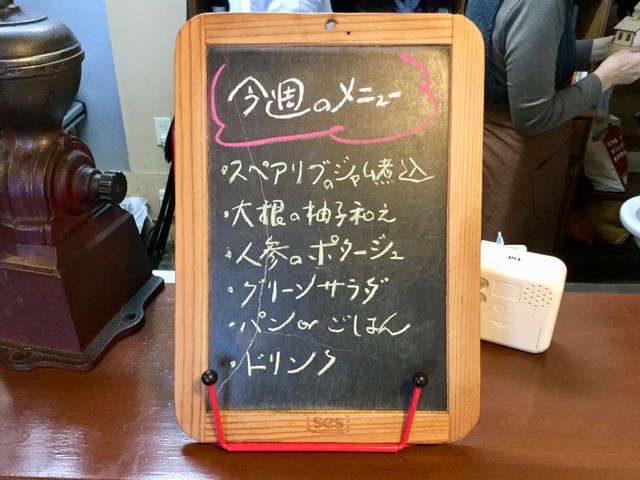 今週のメニュー
・スペアリブのジャム煮込
・大根の柚子和え
・人参のポタージュ
・グリーンサラダ
・パン or ごはん
・ドリンク
SCS